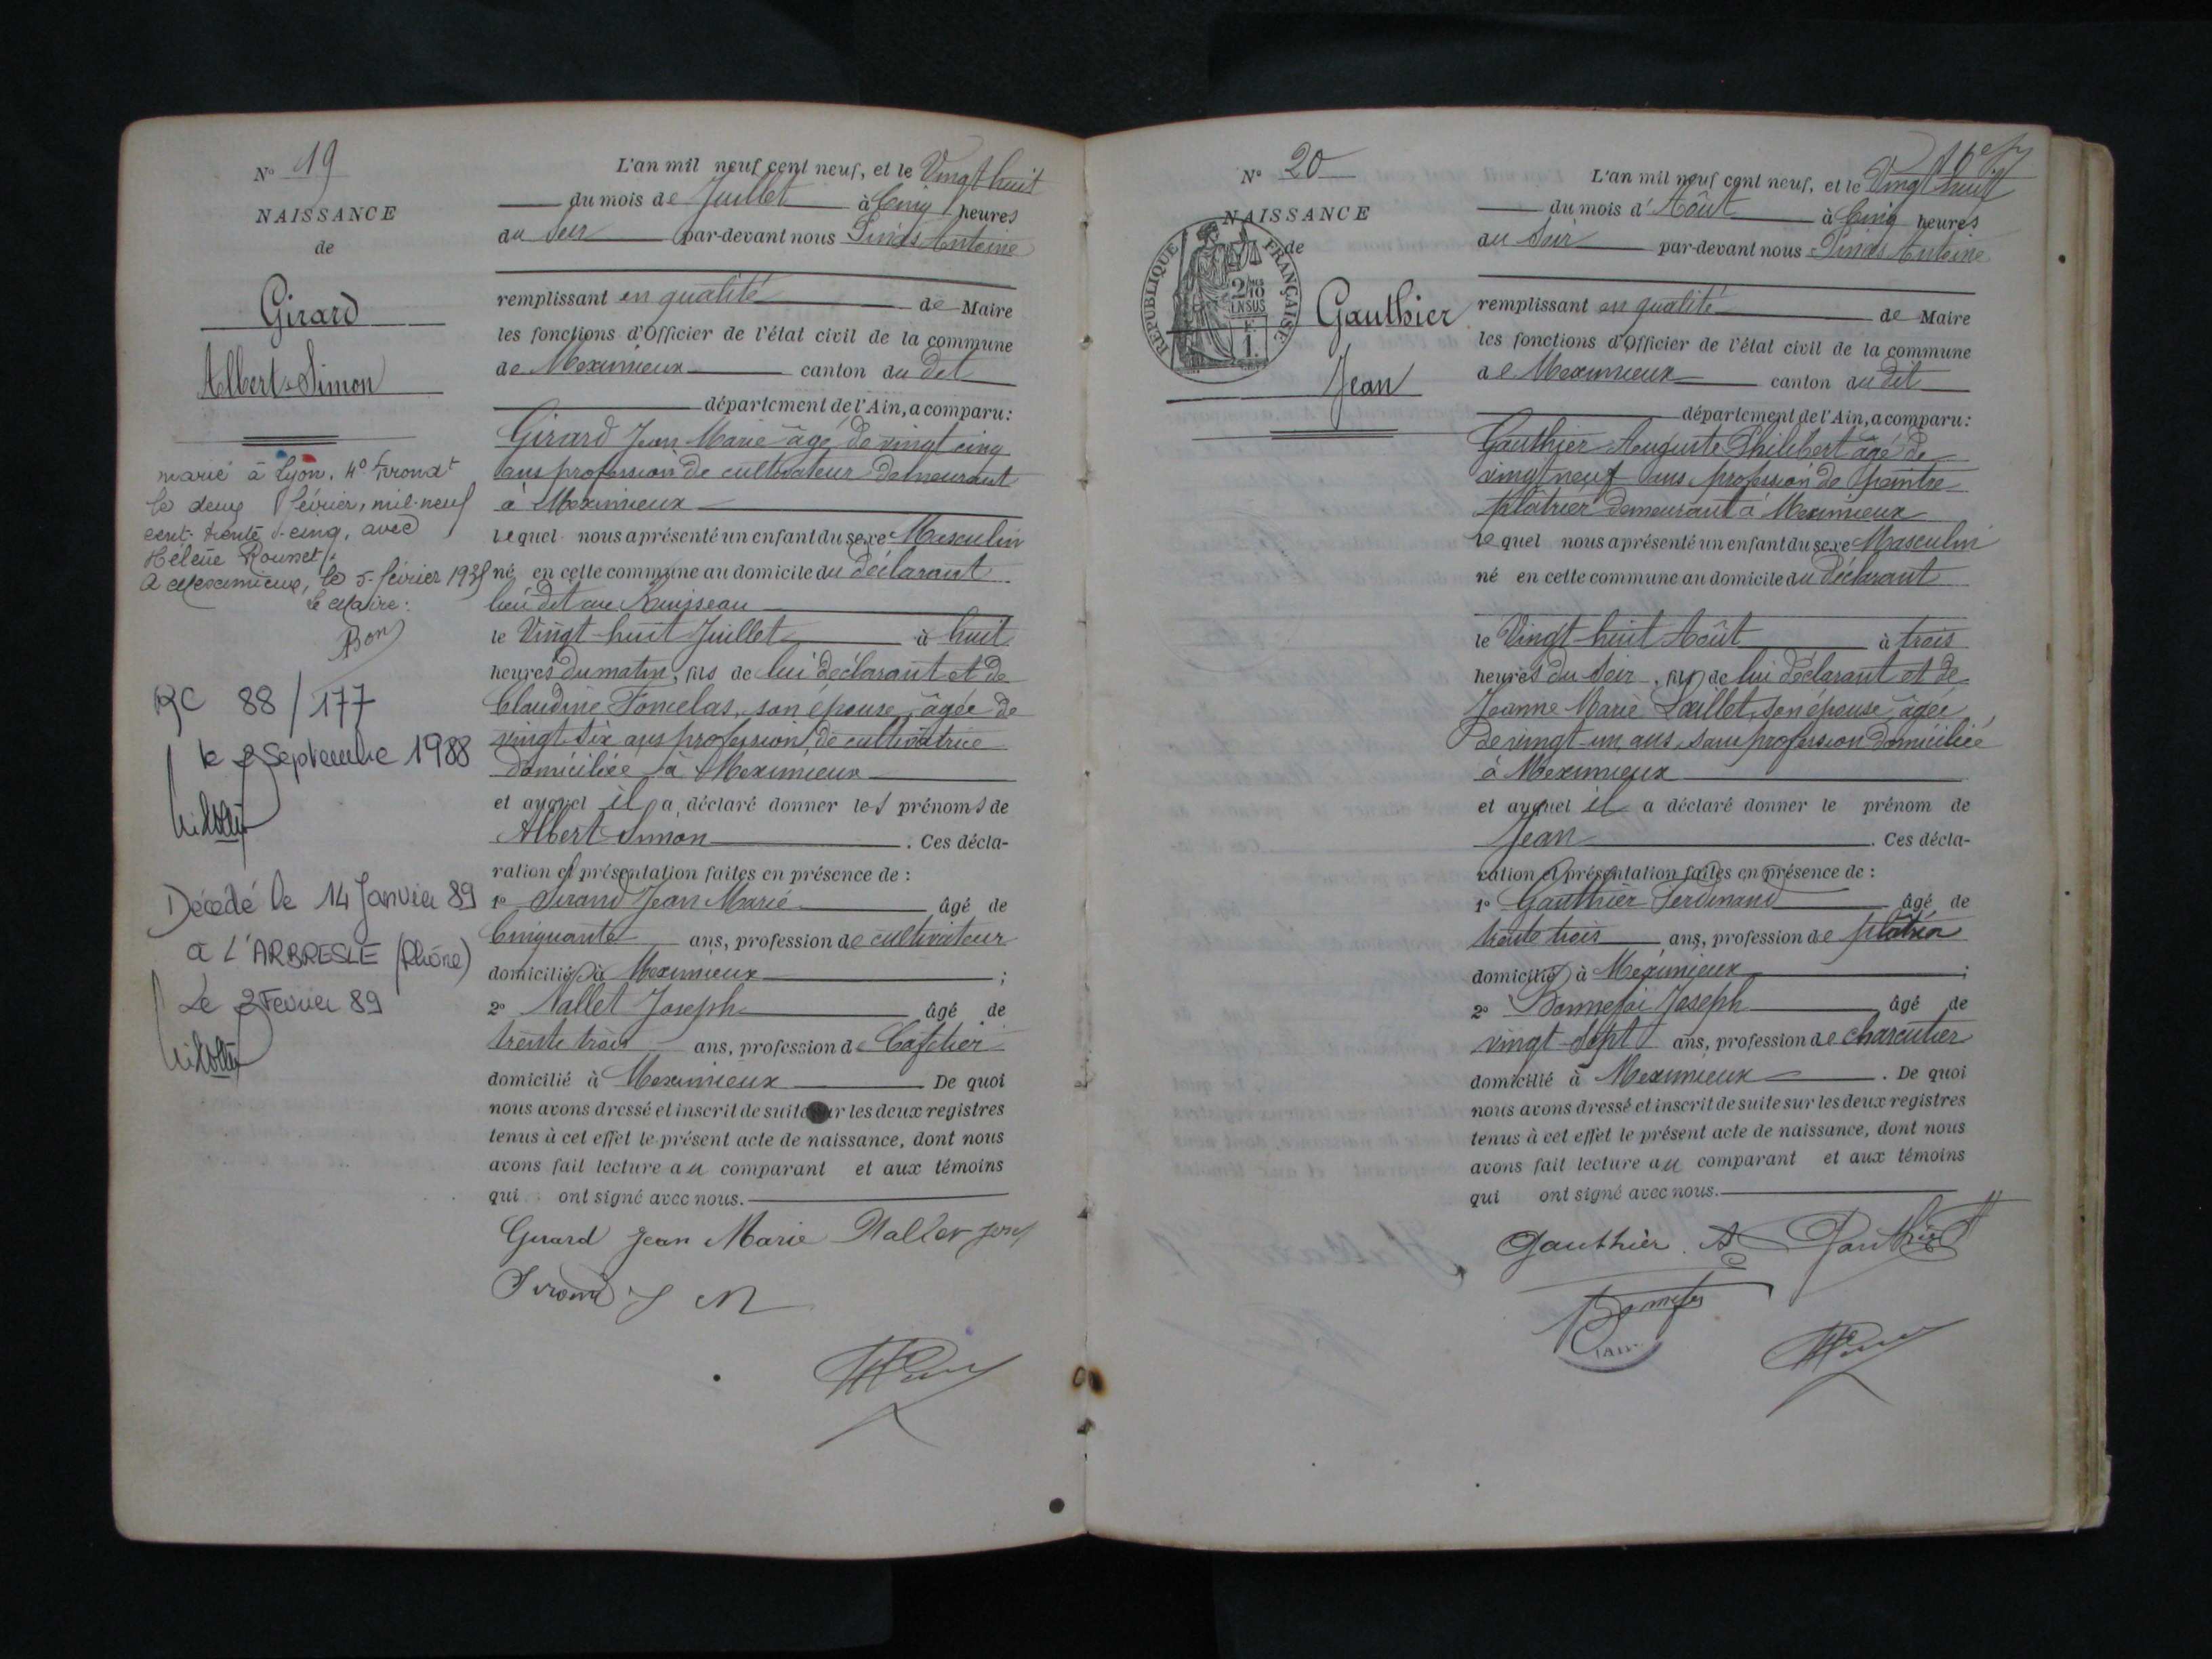 Nº 19
NAISSANCE
de
Girard
Albert-Simon
marié à Lyon, 4º Arrondt
le deux février, mil-neuf
cent-trente-cinq, avec
Hélène
A Meximieux, le 5 février 1935
Le Maire:
RC 88/177
le 2 Septembre 1988
Décédé le 14 Janvier 89
à L'ARBRESLE (Rhône)
Le 2 Fevrier 89
L'an mil neuf cent neuf, et le Vingt huit
du mois de Juillet à Cinq heures
du Soir par-devant nous Antoine
remplissant en qualité de Maire
les fonctions d'Officier de l'état civil de la commune
de Meximieux canton du dit
département de l'Ain, a comparu:
Girard Jean Marie âgé de vingt cinq
ans profession de cultivateur demeurant
à Meximieux
Lequel nous a présenté un enfant du sexe Masculin
né en cette commune au domicile du déclarant
lieu dit rue Ruisseau
le Vingt-huit Juillet à huit
heures du matin, fils de lui déclarant et de
Claudine son épouse, âgée de
vingt six ans profession de cultivatrice
domiciliée à Meximieux
et auquel il a déclaré donner les prénoms de
Albert Simon. Ces décla-
ration et présentation faites en présence de:
1º Jean Marie âgé de
Cinquante ans, profession de cultivateur
domicilié à Meximieux;
2º Nallet Joseph âgé de
trente trois ans, profession de Cafetier
domicilié à Meximieux De quoi
nous avons dressé et inscrit de suite sur les deux registres
tenus à cet effet le présent acte de naissance, dont nous
avons fait lecture au comparant et aux témoins
qui ont signé avec nous.
Girard Jean Marie
J M
Nº 20
NAISSANCE
de
RÉPUBLIQUE FRANÇAISE
2/10
EN SUS
Gauthier
Jean
L'an mil neuf cent neuf, et le Vingt huit
du mois d'Août à Cinq heures
du Soir par-devant nous Antoine
remplissant en qualité de Maire
les fonctions d'Officier de l'état civil de la commune
de Meximieux canton du dit
département de l'Ain, a comparu:
Gauthier Auguste Philibert âgé de
vingt neuf ans profession de peintre
plâtrier demeurant à Meximieux
Lequel nous a présenté un enfant du sexe Masculin
né en cette commune au domicile du déclarant
le Vingt-huit Août à trois
heures du Soir, fils de lui déclarant et de
Jeanne Marie son épouse âgée
de vingt-un ans sans profession domiciliée
à Meximieux
et auquel il a déclaré donner le prénom de
Jean. Ces décla-
ration et présentation faites en présence de:
1º Gauthier Ferdinand âgé de
trente trois ans, profession de plâtrier
domicilié à Meximieux;
2º Bonnefoi Joseph âgé de
vingt-sept ans, profession de charcutier
domicilié à Meximieux. De quoi
nous avons dressé et inscrit de suite sur les deux registres
tenus à cet effet le présent acte de naissance, dont nous
avons fait lecture au comparant et aux témoins
qui ont signé avec nous.
Gauthier A Gauthier